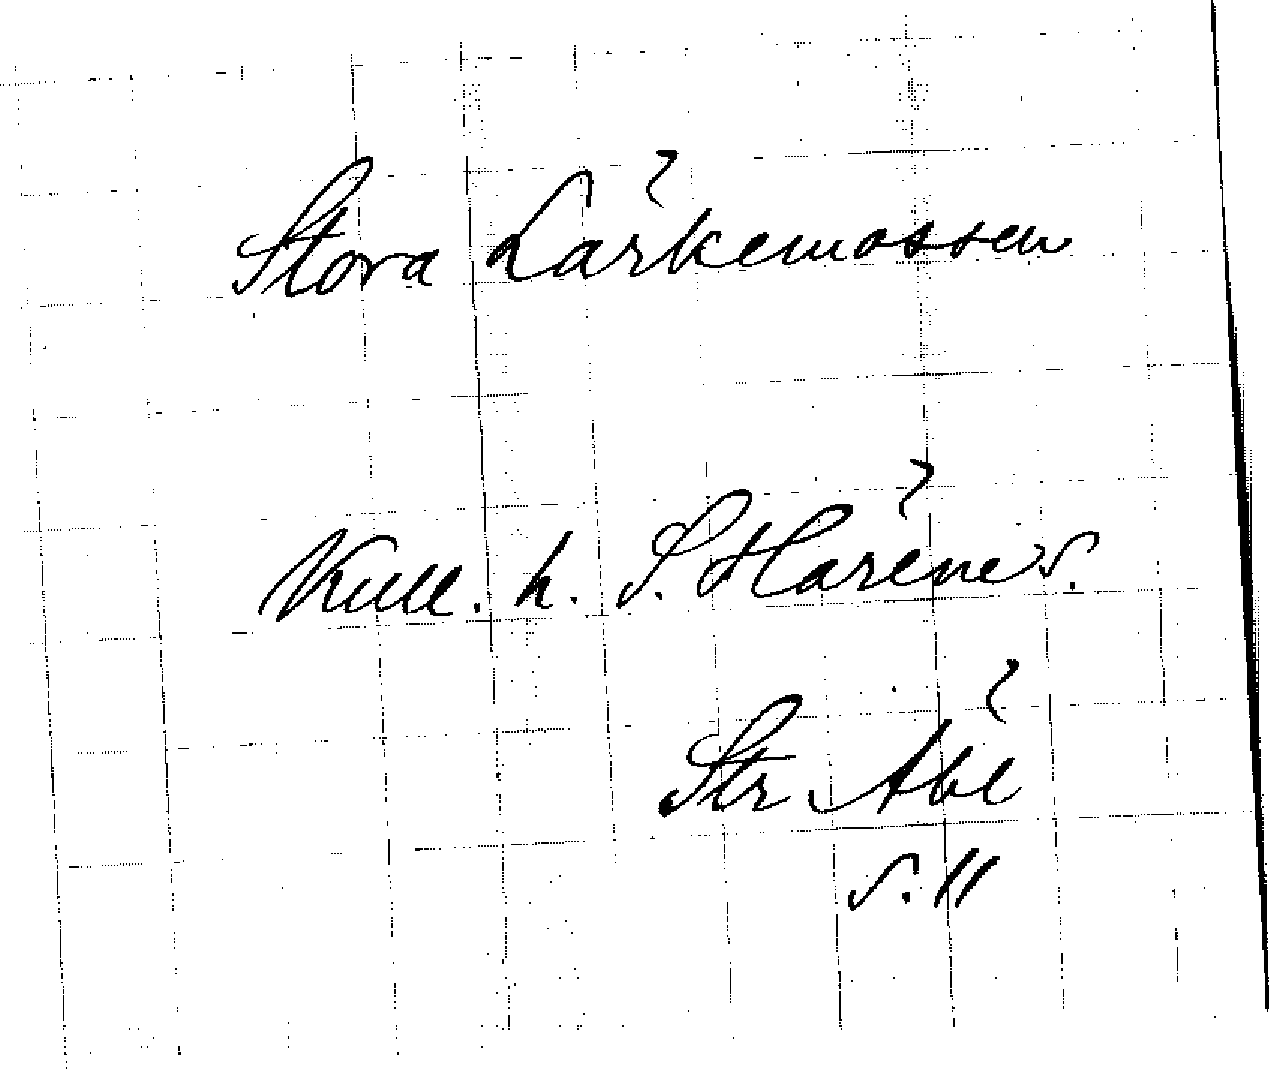 Stora Lärkemossen
Kull. h. S. Härene s.
Str Åbe
s. 11